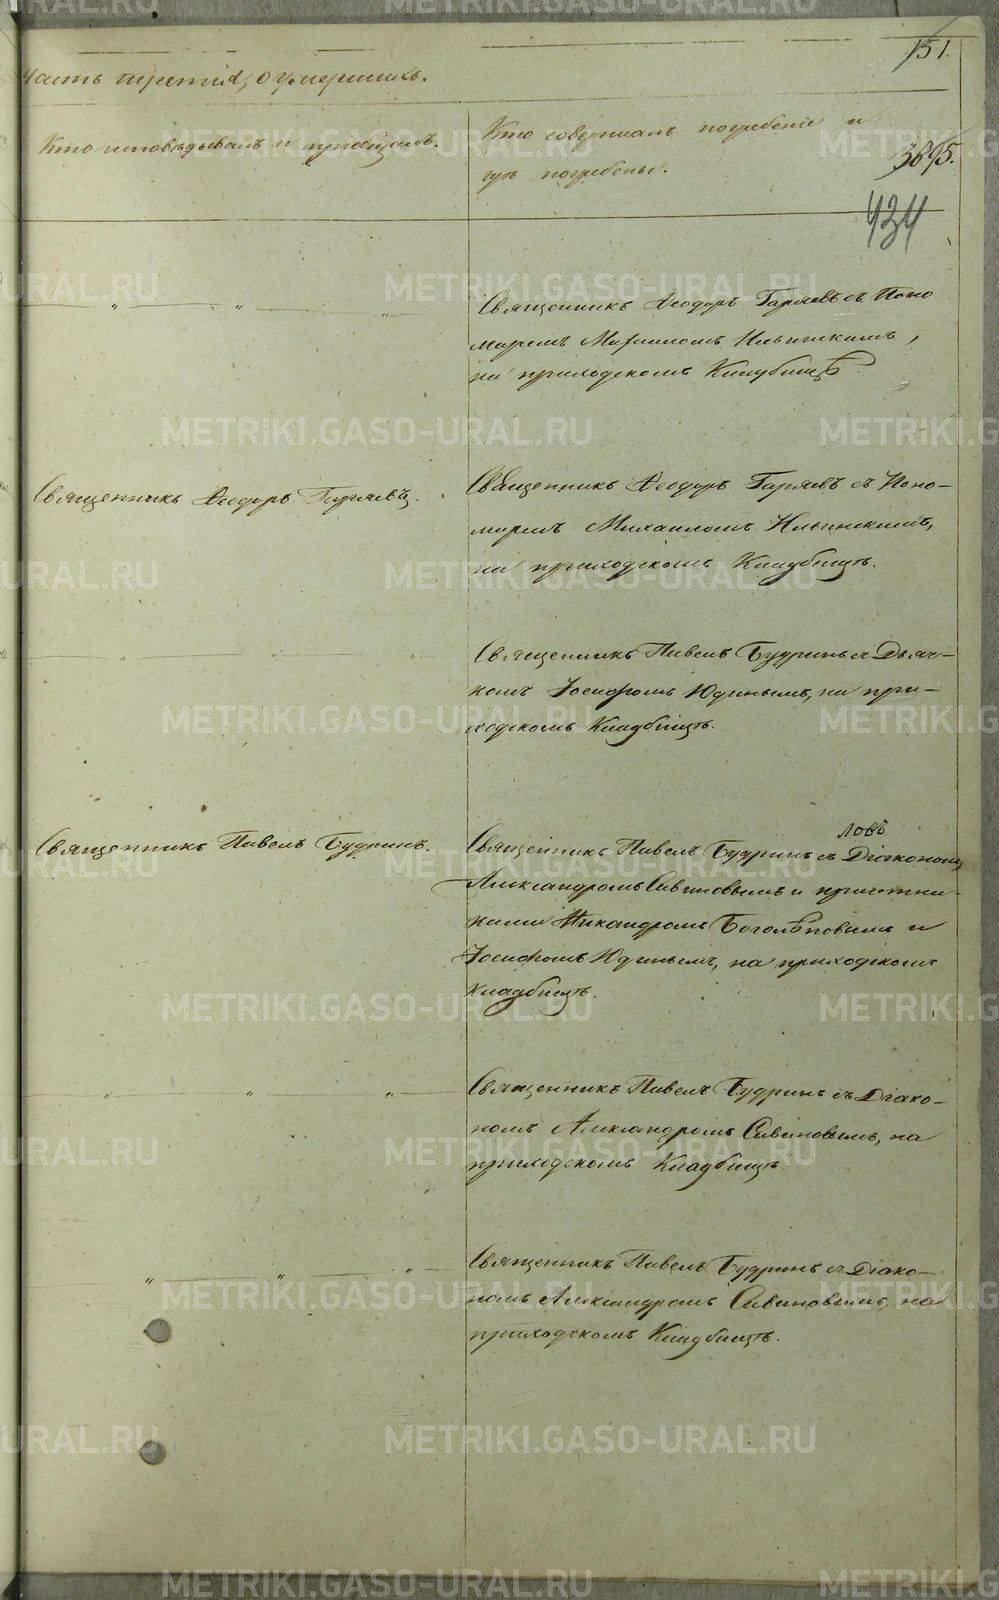 151.
Часть третія, о умершихъ.
Кто исповѣдывалъ и пріобщалъ.
Кто совершалъ погребеніе и
гдѣ погребены.
3695.
434
Священникъ Ѳеодоръ Гаряевъ съ Поно
маремъ Михаиломъ Ильинскимъ,
на приходскомъ Кладбищѣ
Священникъ Ѳеодоръ Гаряевъ.
Священникъ Ѳеодоръ Гаряевъ съ Поно-
маремъ Михаиломъ Ильинскимъ,
на приходскомъ Кладбищѣ.
Священникъ Павелъ Будринъ съ Дьяч-
комъ Іосифомъ Юдинымъ, на при-
ходскомъ Кладбищѣ.
Священникъ Павелъ Будринъ.
ловъ
Священникъ Павелъ Будринъ съ Діакономъ
Александромъ Савиновымъ и причетни-
ками Никандромъ Боголѣповымъ и
Іосифомъ Юдинымъ, на приходскомъ
кладбищѣ.
Священникъ Павелъ Будринъ съ Діако-
номъ Александромъ Савиновымъ, на
приходскомъ Кладбищѣ.
Священникъ Павелъ Будринъ съ Діако-
номъ Александромъ Савиновымъ, на
приходскомъ Кладбищѣ.
METRIKI.GASO-URAL.RU